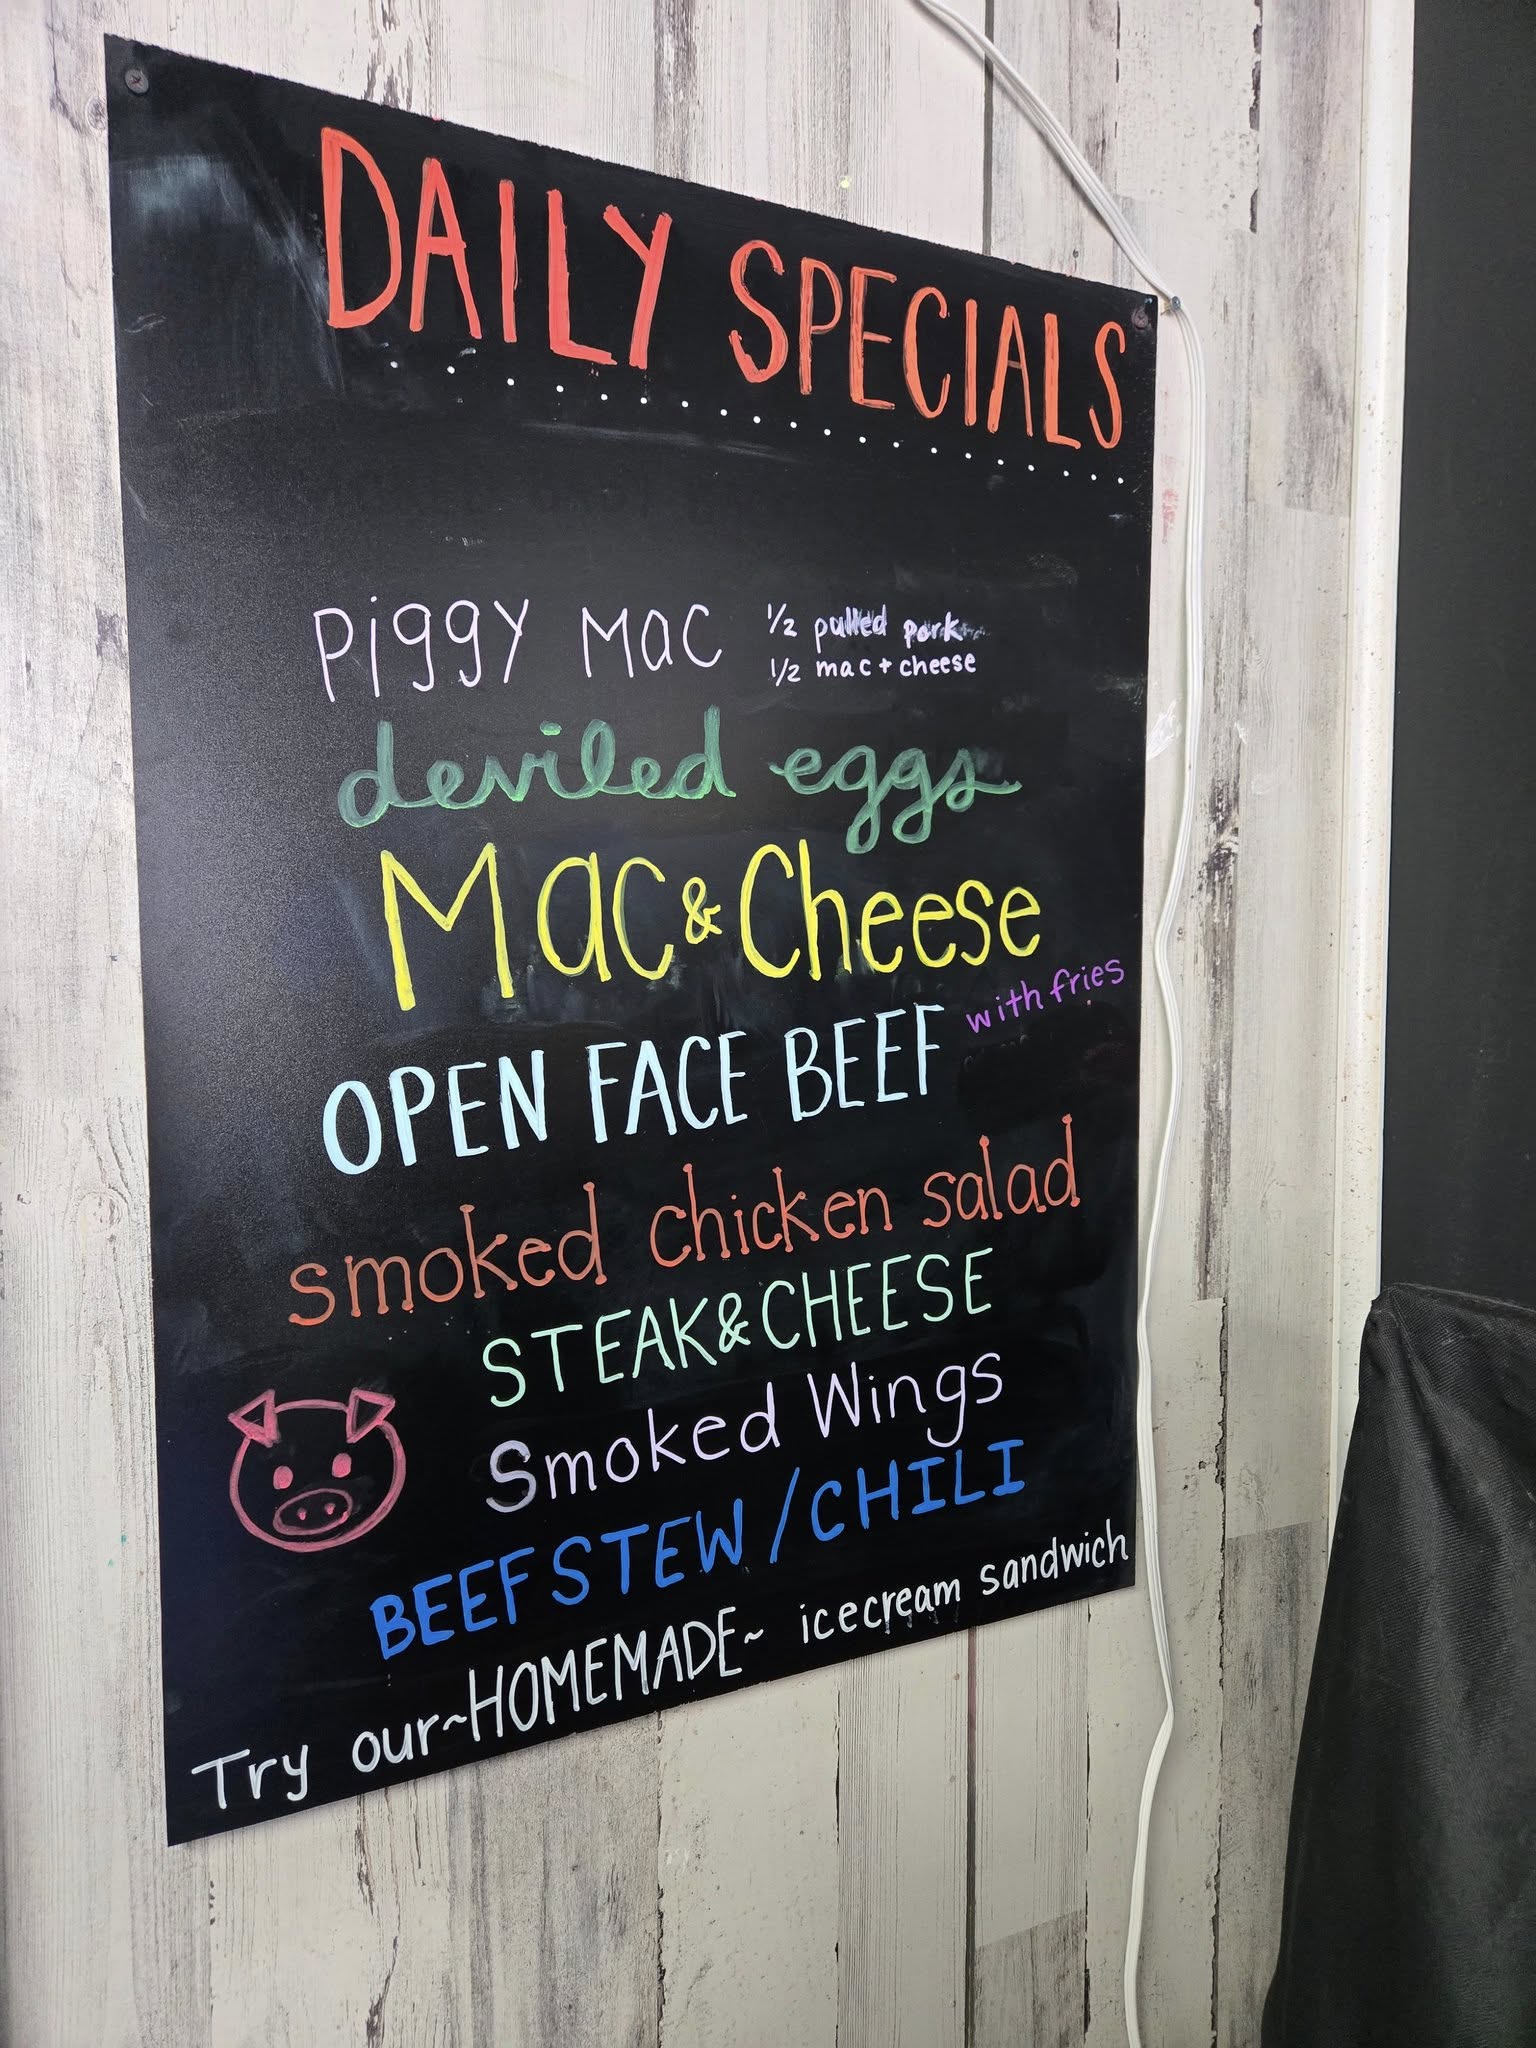 DAILY SPECIALS
Piggy Mac 1/2 pulled pork
1/2 mac + cheese
deviled eggs
Mac & Cheese
OPEN FACE BEEF with fries
smoked chicken salad
STEAK & CHEESE
Smoked Wings
BEEF STEW / CHILI
Try our ~ HOMEMADE ~ icecream sandwich